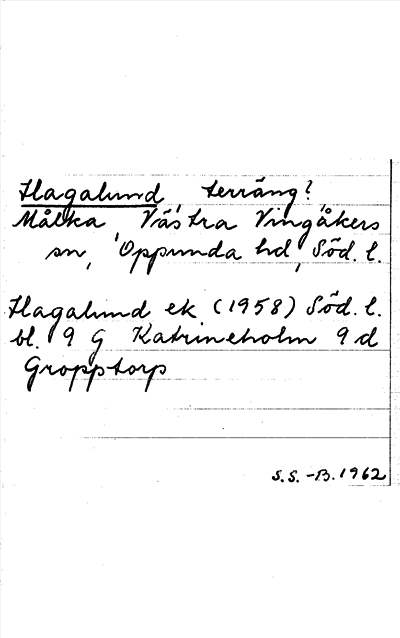 Hagalund, terräng?
Målka, Västra Vingåkers
sn, Oppunda hd, Söd. l.
Hagalund ek (1958) Söd. l.
bl. 9 G Katrineholm 9 d
Gropptorp
S.S.-B. 1962